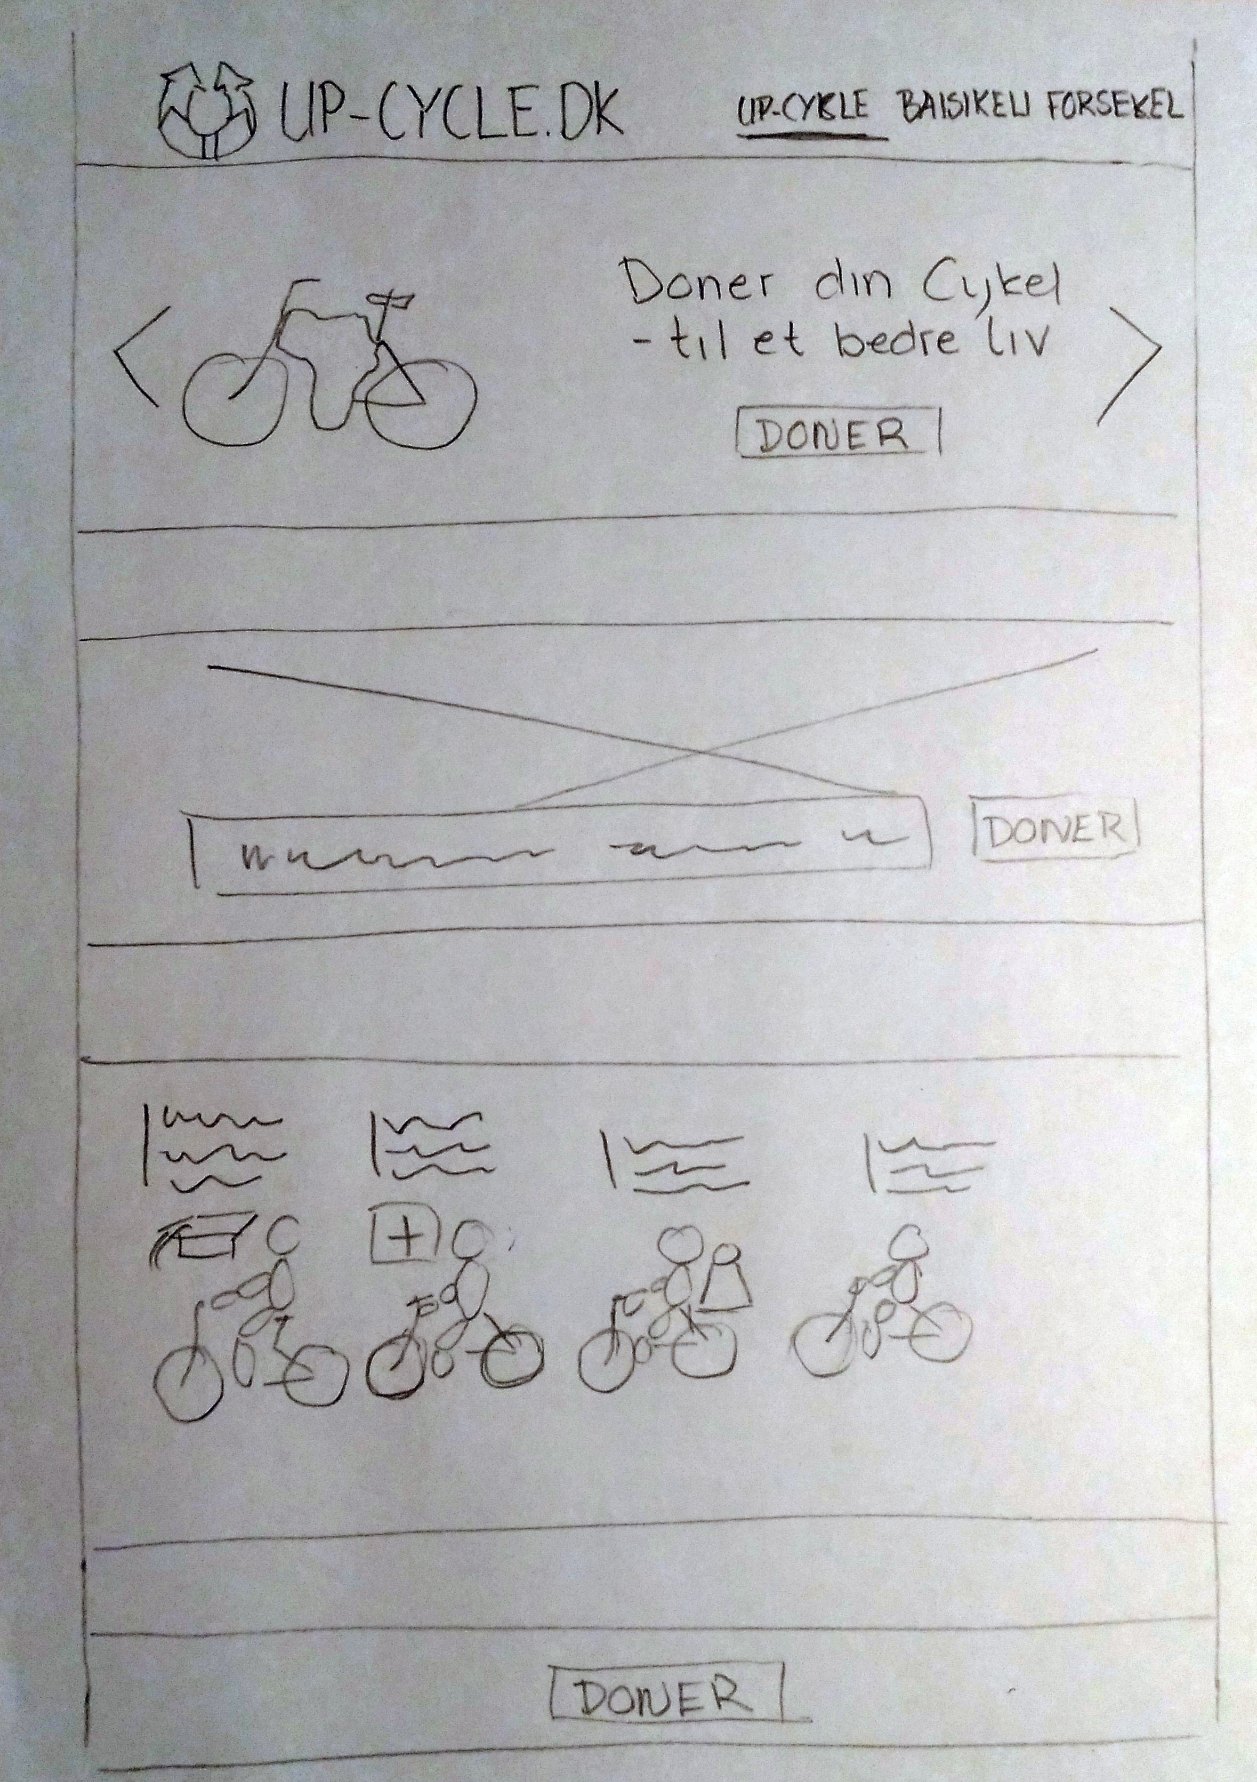 UP-CYCLE.DK
UP-CYKLE BAISIKELI FORSEKEL
Doner din Cykel
-til et bedre liv
DONER
DONER
DONER